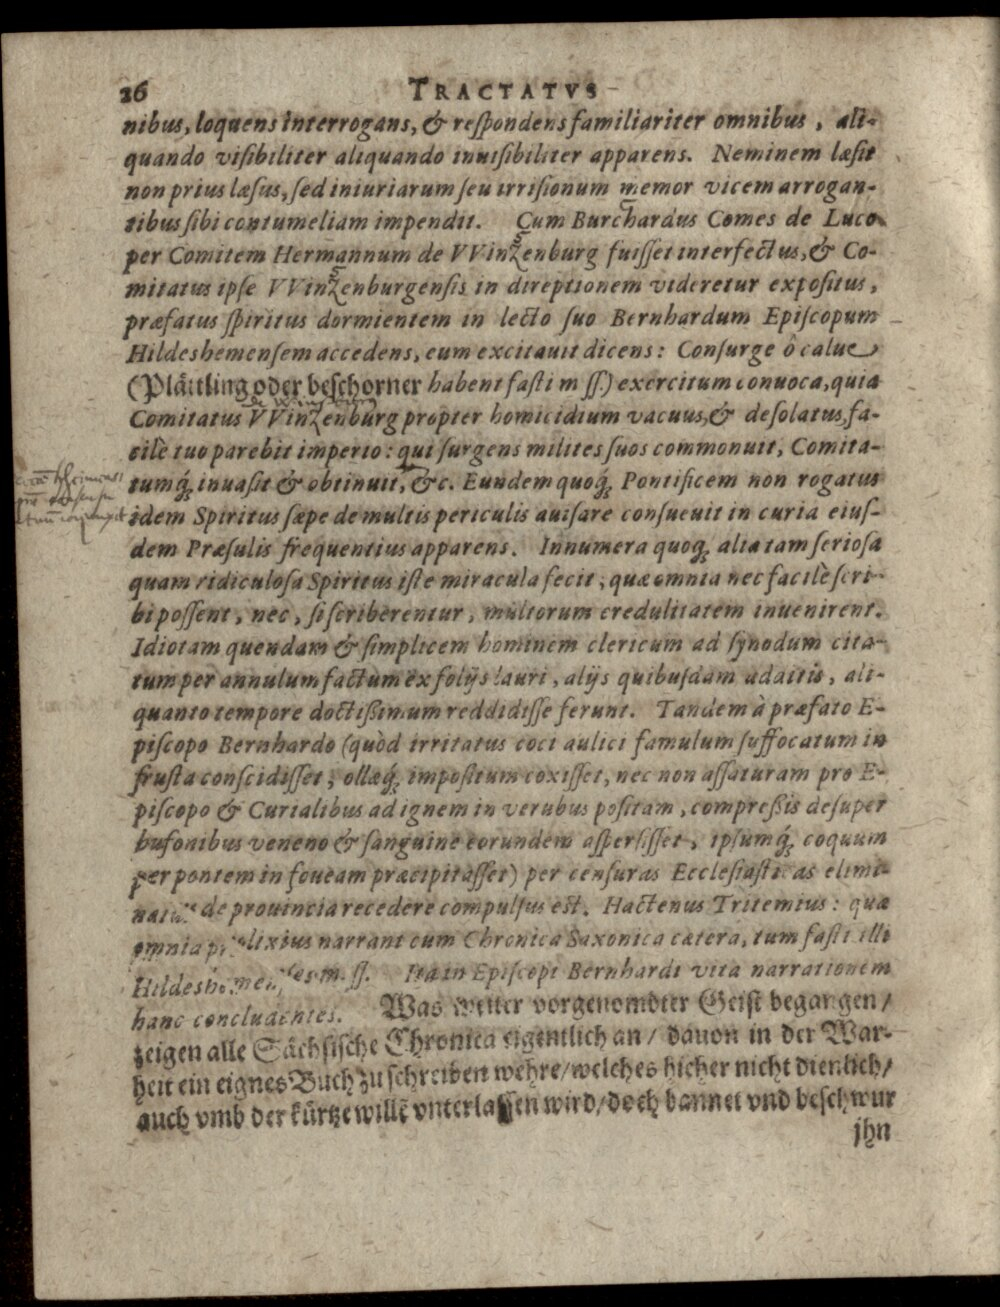 26 TRACTATVS
nibus, loquens interrogans, & reſpondens familiariter omnibus, ali-
quando viſibiliter aliquando inuiſibiliter apparens. Neminem læſit
non prius læſus, ſed iniuriarum ſeu irriſionum memor vicem arrogan-
tibus ſibi contumeliam impendit. Cum Burchardus Comes de Luco
per Comitem Hermannum de VVinZenburg fuiſſet interfectus, & Co-
mitatus ipſe VVinZenburgenſis in direptionem videretur expoſitus,
præfatus ſpiritus dormientem in lecto ſuo Bernhardum Epiſcopum
Hildeshemenſem accedens, eum excitauit dicens: Conſurge ô calue
(Plättling oder beſchorner habent faſti m ſſ.) exercitum conuoca, quia
Comitatus VVinZenburg propter homicidium vacuus, & deſolatus, fa-
cilè tuo parebit imperio: qui ſurgens milites ſuos commonuit, Comita-
tumq́ꝫ inuaſit & obtinuit, &c. Eundem quoq́ꝫ Pontificem non rogatus
idem Spiritus ſæpe de multis periculis auiſare conſueuit in curia eiuſ-
dem Præſulis frequentius apparens. Innumera quoqꝫ alia tam ſerioſa
quam ridiculoſa Spiritus iſte miracula fecit, quæ omnia nec facilè ſcri-
bi poſſent, nec, ſi ſcriberentur, multorum credulitatem inuenirent.
Idiotam quendam & ſimplicem hominem clericum ad ſynodum cita-
tum per annulum factum ex folijs lauri, alijs quibuſdam additis, ali-
quanto tempore doctißimum reddidiſſe ferunt. Tandem à præfato E-
piſcopo Bernhardo (quòd irritatus coci aulici famulum ſuffocatum in
fruſta conſcidiſſet, ollæq́ꝫ impoſitum coxiſſet, nec non aſſaturam pro E-
piſcopo & Curialibus ad ignem in verubus poſitam, compreßis deſuper
bufonibus veneno & ſanguine eorundem aſperſiſſet, ipſumq́ꝫ coquum
per pontem in foueam præcipitaſſet) per cenſuras Eccleſiaſticas elimi-
natus de prouincia recedere compulſus eſt. Hactenus Tritemius: quæ
omnia prolixius narrant cum Chronica Saxonica cætera, tum faſti illi
Hildeshemenſes m. ſſ. Ita in Epiſcopi Bernhardi vita narrationem
hanc concludentes. Was weiter vorgenomdter Geiſt begangen/
zeigen alle Sächſiſche Chronica eigentlich an/ dauon in der War-
heit ein eignes Buch zu ſchreiben wehre/ welches hieher nicht dienlich/
auch vmb der kürtze willē vnterlaſſen wird/ doch bannet vnd beſchwur
jhn